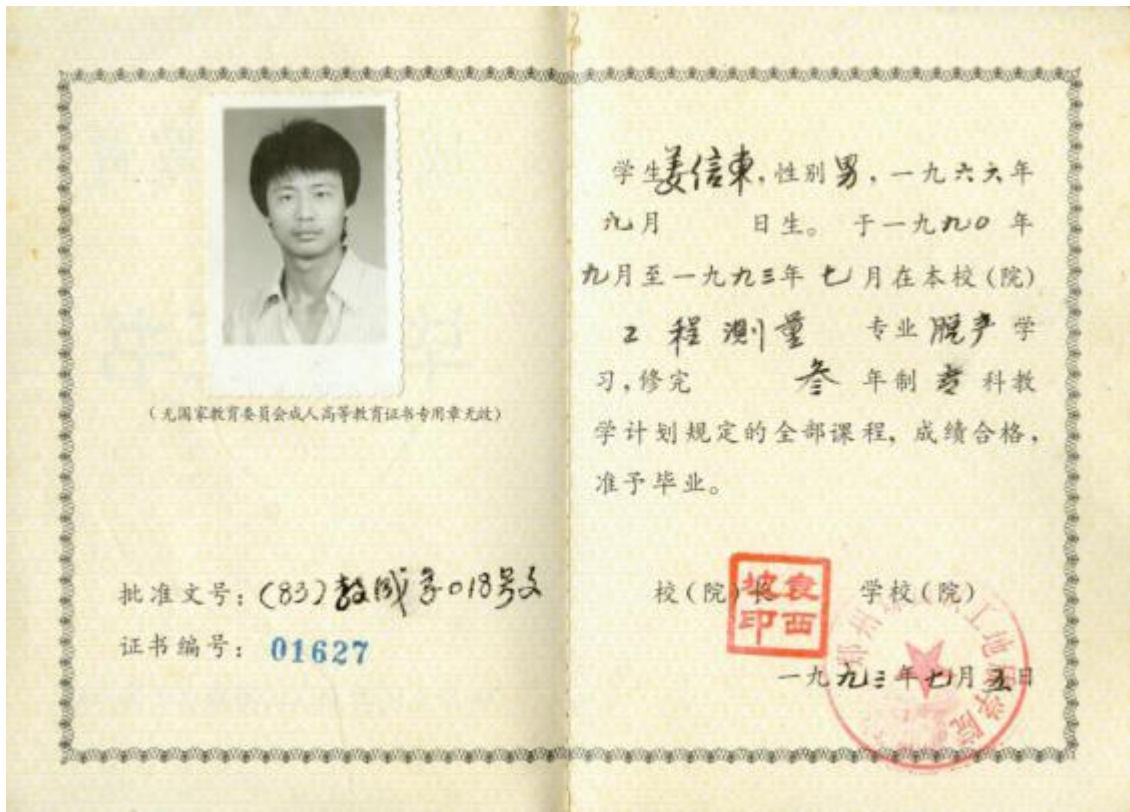 (无国家教育委员会成人高等教育证书专用章无效)
批准文号：(83)教成字018号文
证书编号： 01627
学生姜信东，性别男，一九六六年
九月 日生。 于一九九〇 年
九月至一九九三年 七 月在本校(院)
工程测量 专业脱产学
习，修完 叁 年制 专 科教
学计划规定的全部课程，成绩合格，
准予毕业。
校(院)长 学校(院)
袁西坡印
郑州 工地质学院
一九九三年七月五日